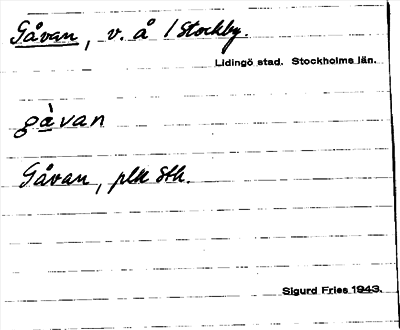 Gåvan, v. å / Stockby.
Lidingö stad. Stockholms län.
gàvan
Gåvan, plk Sth.
Sigurd Fries 1943.